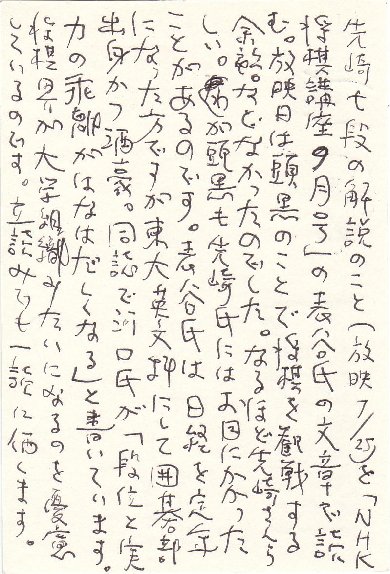 先崎七段の解説のこと(放映7/25)を「NHK
将棋講座9月号」の表谷氏の文章で読
む。放映日は頭黒のことで将棋を観戦する
余裕などなかったのでした。なるほど先崎さんら
しい。わが頭黒も先崎氏にはお目にかかった
ことがあるのです。表谷氏は日経を定年
になった方ですが東大英文科にして囲碁部
出身かつ酒豪。同誌で河口氏が「段位と実
力の乖離がはなはだしくなる」と書いています。
将棋界が大学組織みたいになるのを憂慮
しているのです。立読みでも一読に値します。